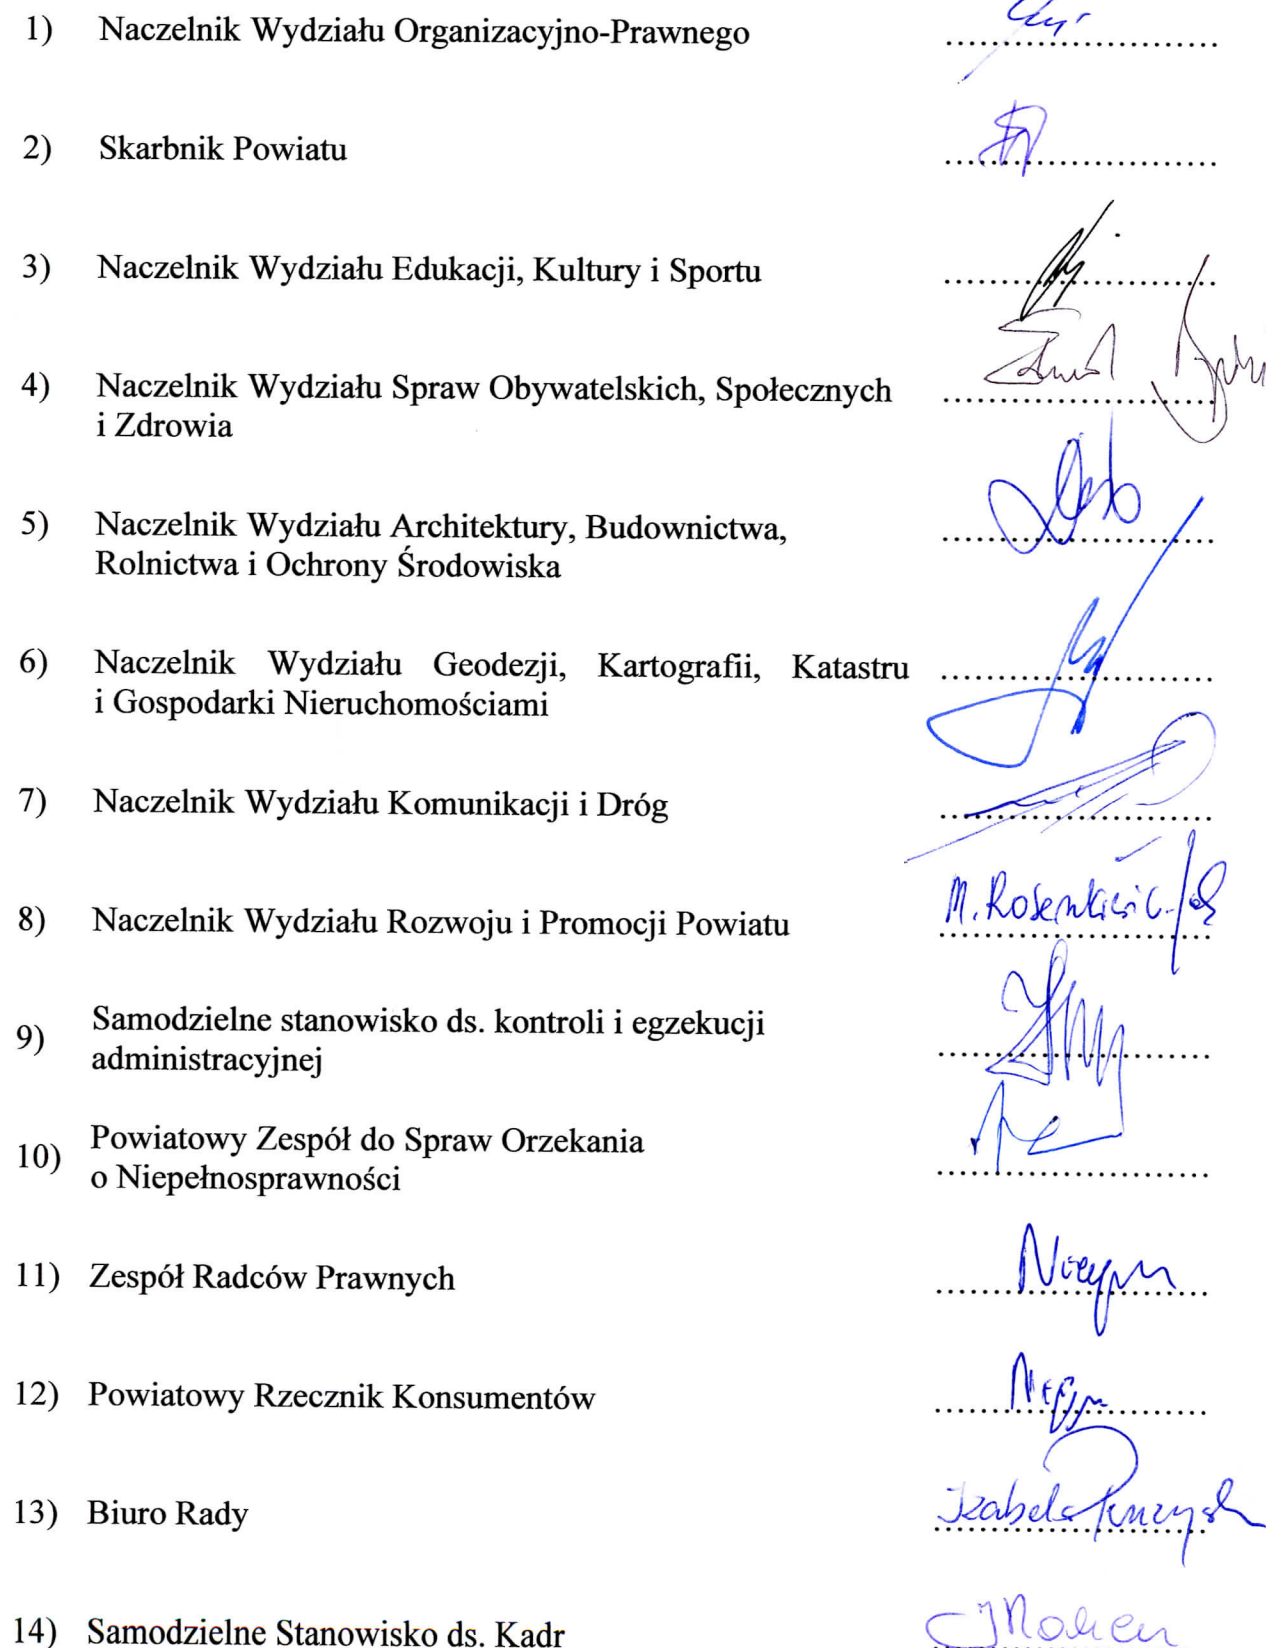 1) Naczelnik Wydziału Organizacyjno-Prawnego ..............................
2) Skarbnik Powiatu ..............................
3) Naczelnik Wydziału Edukacji, Kultury i Sportu ..............................
4) Naczelnik Wydziału Spraw Obywatelskich, Społecznych ..............................
i Zdrowia
5) Naczelnik Wydziału Architektury, Budownictwa, ..............................
Rolnictwa i Ochrony Środowiska
6) Naczelnik Wydziału Geodezji, Kartografii, Katastru ..............................
i Gospodarki Nieruchomościami
7) Naczelnik Wydziału Komunikacji i Dróg ..............................
8) Naczelnik Wydziału Rozwoju i Promocji Powiatu M. Rosenkiewicz
9) Samodzielne stanowisko ds. kontroli i egzekucji
administracyjnej ..............................
10) Powiatowy Zespół do Spraw Orzekania
o Niepełnosprawności ..............................
11) Zespół Radców Prawnych ..............................
12) Powiatowy Rzecznik Konsumentów ..............................
13) Biuro Rady Izabela
14) Samodzielne Stanowisko ds. Kadr